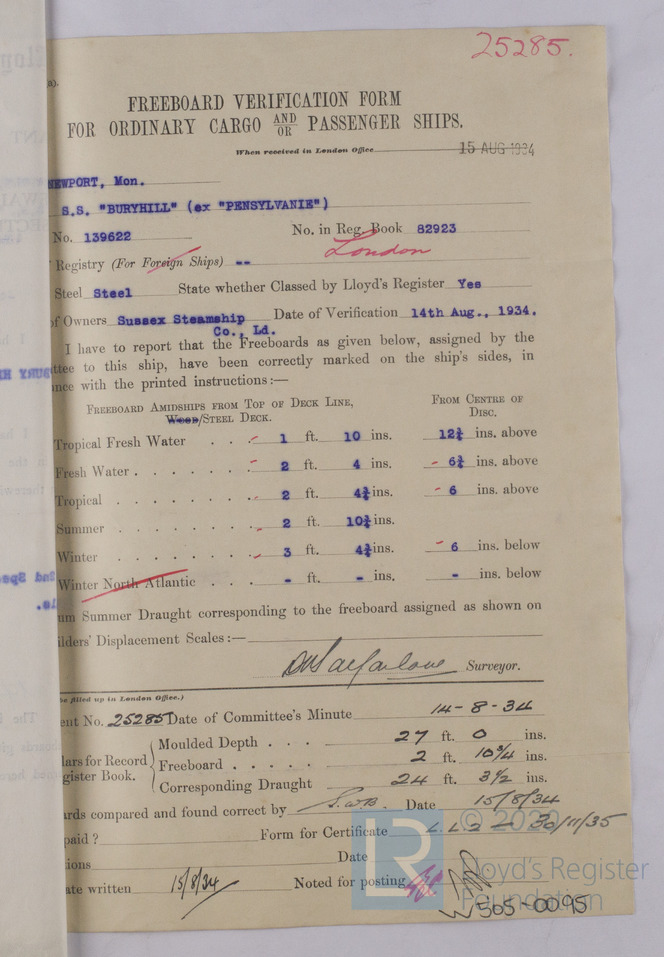 25285.
FREEBOARD VERIFICATION FORM
FOR ORDINARY CARGO AND/OR PASSENGER SHIPS.
When received in London Office 15 AUG 1934
NEWPORT, Mon.
S.S. "BURYHILL" (ex "PENSYLVANIE")
No. 139622 No. in Reg. Book 82923
London
Registry (For Foreign Ships) --
Steel Steel State whether Classed by Lloyd's Register Yes
of Owners Sussex Steamship Date of Verification 14th Aug., 1934.
Co., Ld.
I have to report that the Freeboards as given below, assigned by the
ttee to this ship, have been correctly marked on the ship's sides, in
nce with the printed instructions:—
FREEBOARD AMIDSHIPS FROM TOP OF DECK LINE, FROM CENTRE OF
WOOD/STEEL DECK. DISC.
Tropical Fresh Water . . . 1 ft. 10 ins. 12¾ ins. above
Fresh Water . . . . . . . 2 ft. 4 ins. 6¾ ins. above
Tropical . . . . . . . . 2 ft. 4¾ ins. 6 ins. above
Summer . . . . . . . . 2 ft. 10¾ ins.
Winter . . . . . . . . 3 ft. 4¾ ins. 6 ins. below
Winter North Atlantic . . . - ft. - ins. - ins. below
um Summer Draught corresponding to the freeboard assigned as shown on
ilders' Displacement Scales:—
Macfarlane Surveyor.
be filled up in London Office.)
ent No. 25285 Date of Committee's Minute 14-8-34
Moulded Depth . . . 27 ft. 0 ins.
lars for Record Freeboard . . . . . 2 ft. 10¾ ins.
gister Book. Corresponding Draught 24 ft. 3½ ins.
rds compared and found correct by S.W.B. Date 15/8/34
paid? Form for Certificate L.L.2 - 30/11/35
ions Date
ate written 15/8/34 Noted for posting
W 505-0095
© 2020
LR
Lloyd's Register
Foundation